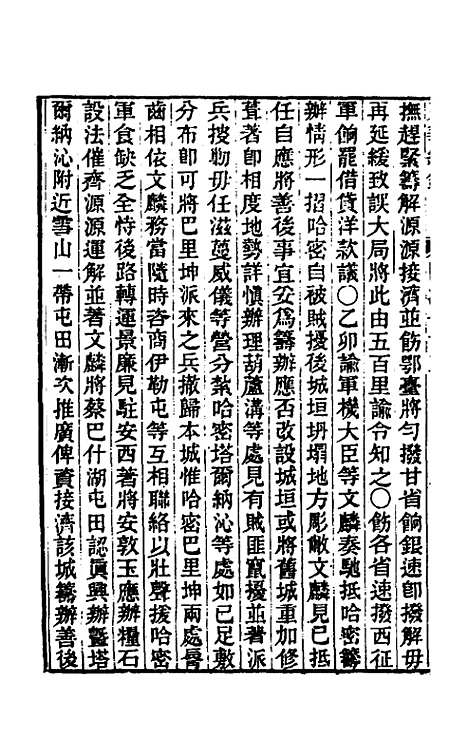 撫趕緊籌解源源接濟並飭鄂臺將勻撥甘省餉銀速卽撥解毋
再延緩致誤大局將此由五百里諭令知之〇飭各省速撥西征
軍餉罷借貸洋款議〇乙卯諭軍機大臣等文麟奏馳抵哈密籌
辦情形一招哈密自被賊擾後城垣坍塌地方彫敝文麟見已抵
任自應將善後事宜妥爲籌辦應否改設城垣或將舊城重加修
葺著卽相度地勢詳愼辦理葫蘆溝等處見有賊匪竄擾並著派
兵搜勦毋任滋蔓威儀等營分紮哈密塔爾納沁等處如已足敷
分布卽可將巴里坤派來之兵撤歸本城惟哈密巴里坤兩處脣
齒相依文麟務當隨時咨商伊勒屯等互相聯絡以壯聲援哈密
軍食缺乏全恃後路轉運景廉見駐安西著將安敦玉應辦糧石
設法催齊源源運解並著文麟將蔡巴什湖屯田認眞興辦蠶塔
爾納沁附近雪山一帶屯田漸次推廣俾資接濟該城籌辦善後